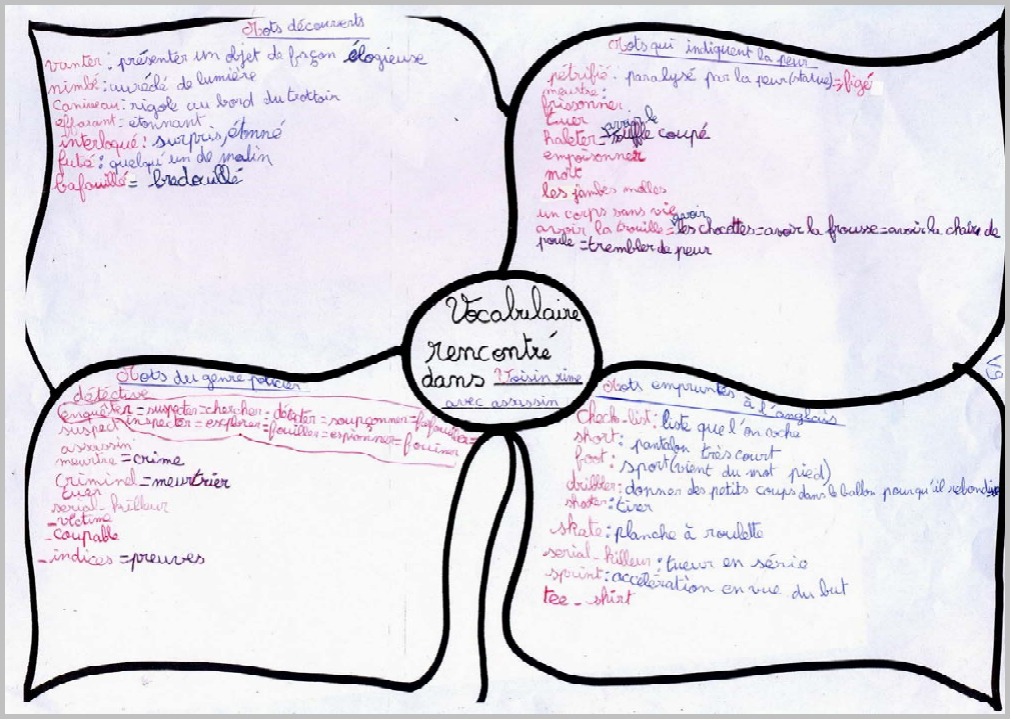 Mots découverts
vanter : présenter un objet de façon élogieuse
nimbé : auréolé de lumière
Caniveau : rigole au bord du trottoir
effarant = étonnant
interloqué : surpris, étonné
futé : quelqu'un de malin
bafouillé = bredouillé
Mots qui indiquent la peur
pétrifié : paralysé par la peur (statue) = figé
meurtre :
frissonner
tuer
haleter = avoir le souffle coupé
empoisonner
mort
les jambes molles
un corps sans vie
avoir la trouille = avoir les chocottes = avoir la frousse = avoir la chair de
poule = trembler de peur
Vocabulaire
rencontré
dans Voisin rime
avec assassin
Mots du genre policier
détective
enquêter = suspecter = chercher = détecter = soupçonner =
suspect inspecter = explorer = fouiller = espionner = fouiner
assassin
meurtre = crime
criminel = meurtrier
tuer
serial-killeur
- victime
- coupable
- indices = preuves
Mots empruntés à l'anglais
check-list : liste que l'on coche
short : pantalon très court
foot : sport (vient du mot pied)
dribbler : donner des petits coups dans le ballon pour qu'il rebondisse
shooter : tirer
skate : planche à roulette
serial-killeur : tueur en série
sprint : accélération en vue du but
tee-shirt